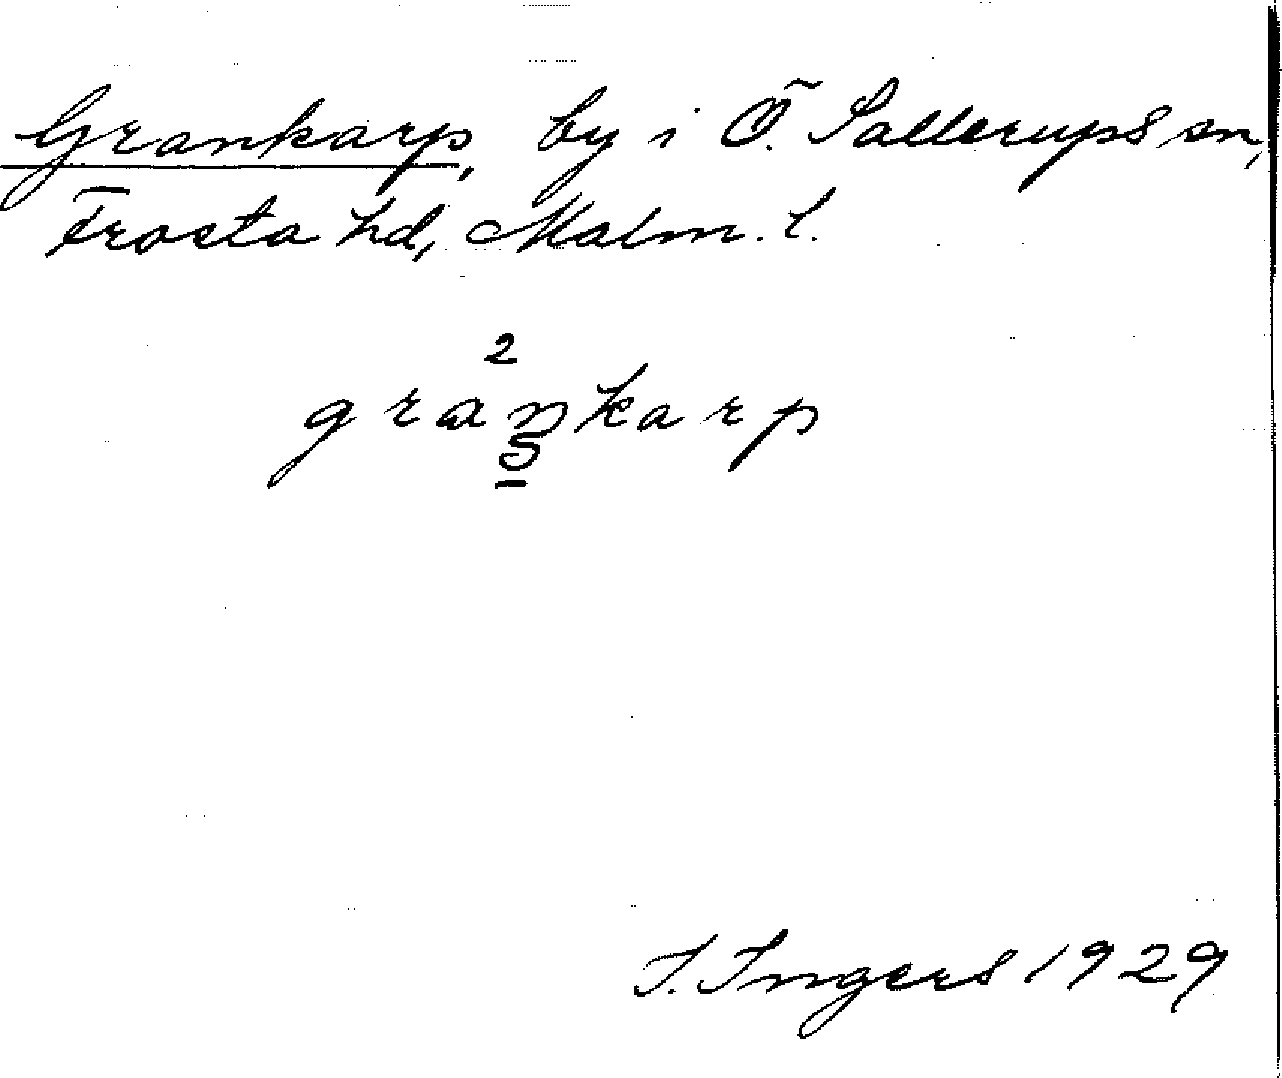 Grankarp, by i Ö. Sallerups sn,
Frosta hd, Malm. l.
2
grankarp
5
I. Ingers 1929